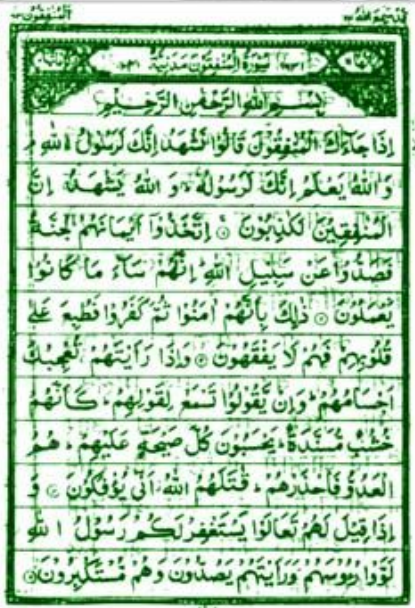 المنفقون ٦٣
قد سمع الله ٢٨
سُوْرَةُ الْمُنٰفِقُوْنَ مَدَنِيَّةٌ
بِسْمِ اللّٰهِ الرَّحْمٰنِ الرَّحِيْمِ
اِذَا جَآءَكَ الْمُنٰفِقُوْنَ قَالُوْا نَشْهَدُ اِنَّكَ لَرَسُوْلُ اللّٰهِ م
وَ اللّٰهُ يَعْلَمُ اِنَّكَ لَرَسُوْلُهٗ وَ اللّٰهُ يَشْهَدُ اِنَّ
الْمُنٰفِقِيْنَ لَكٰذِبُوْنَ ۞ اِتَّخَذُوْۤا اَيْمَانَهُمْ جُنَّةً
فَصَدُّوْا عَنْ سَبِيْلِ اللّٰهِ اِنَّهُمْ سَآءَ مَا كَانُوْا
يَعْمَلُوْنَ ۞ ذٰلِكَ بِاَنَّهُمْ اٰمَنُوْا ثُمَّ كَفَرُوْا فَطُبِعَ عَلٰى
قُلُوْبِهِمْ فَهُمْ لَا يَفْقَهُوْنَ ۞ وَاِذَا رَاَيْتَهُمْ تُعْجِبُكَ
اَجْسَامُهُمْ وَاِنْ يَّقُوْلُوْا تَسْمَعْ لِقَوْلِهِمْ كَاَنَّهُمْ
خُشُبٌ مُّسَنَّدَةٌ يَحْسَبُوْنَ كُلَّ صَيْحَةٍ عَلَيْهِمْ هُمُ
الْعَدُوُّ فَاحْذَرْهُمْ قٰتَلَهُمُ اللّٰهُ اَنّٰى يُؤْفَكُوْنَ ۞ وَ
اِذَا قِيْلَ لَهُمْ تَعَالَوْا يَسْتَغْفِرْ لَكُمْ رَسُوْلُ اللّٰهِ
لَوَّوْا رُءُوْسَهُمْ وَرَاَيْتَهُمْ يَصُدُّوْنَ وَهُمْ مُّسْتَكْبِرُوْنَ ۞